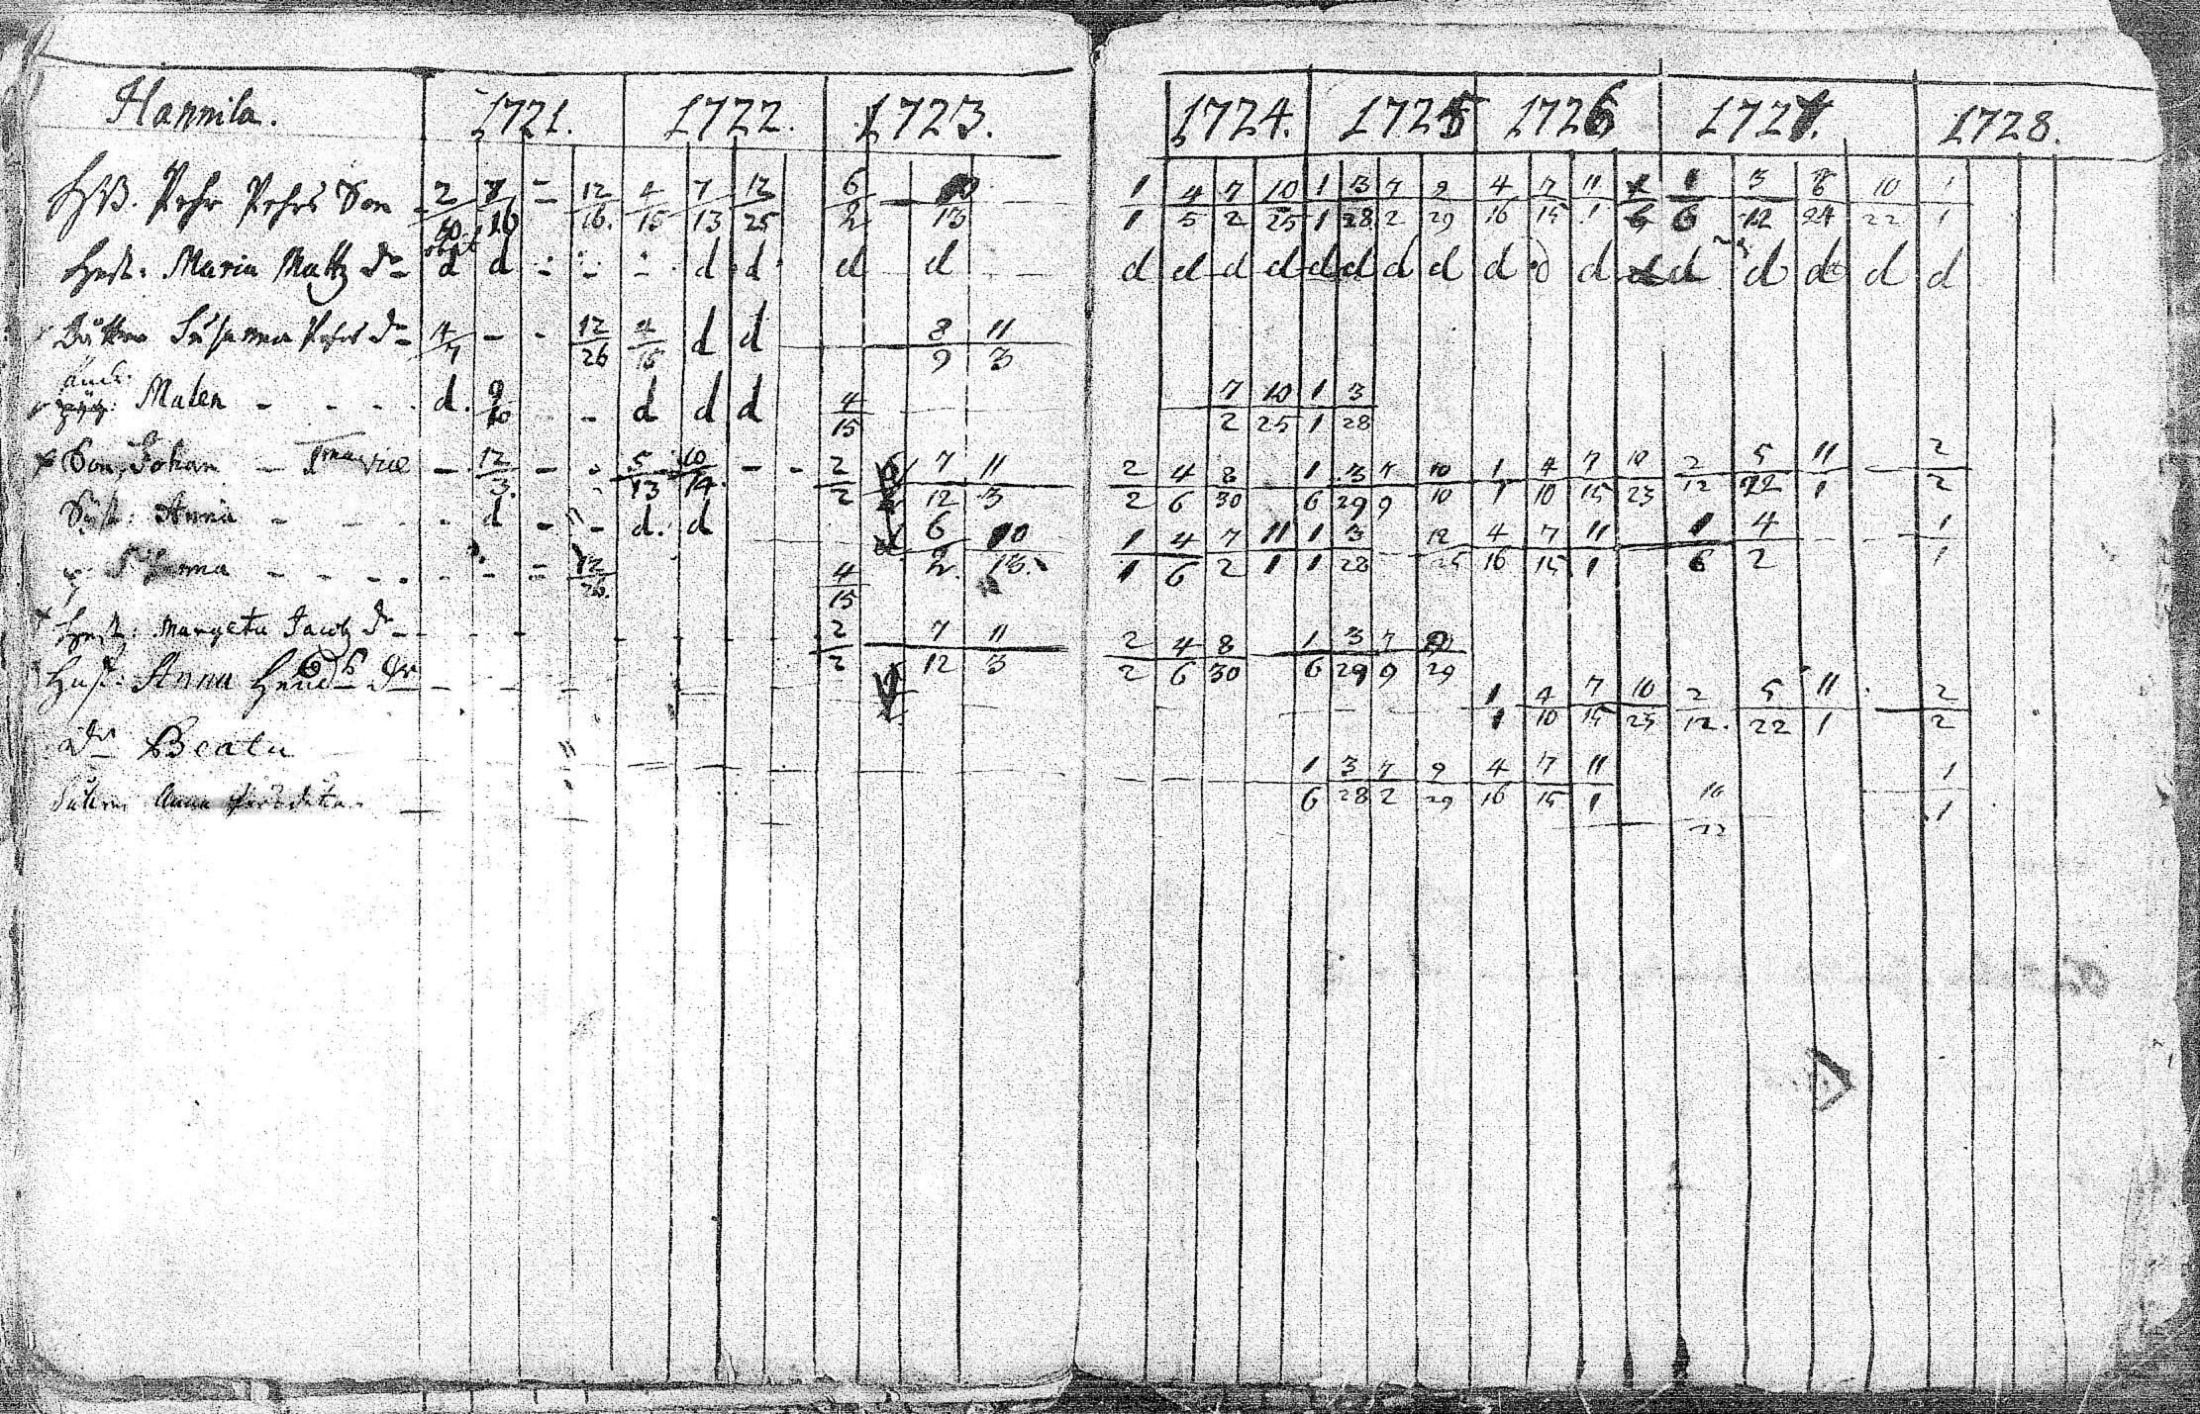 Hannila. 1721. 1722. 1723. 1724. 1725 1726 1727. 1728.
Pehr Pehrs Son 2 7/16 - 12/16. 4/15 7/13 12/25 6/2 10/13 1/1 4/5 7/2 10/25 1/1 3/28 7/2 9/29 4/16 7/15 11/1 1/6 3/12 8/24 10/22 1/1
Hust: Maria Mattz dr d d - - - d d d d d d d d d d d d d d d d d d d d
Dotter Susanna Pehrs dr 4/7 - - 12/26 4/15 d d 8/9 11/3
Malen - - - . d. 9/10 - - d d d 4/15 7/2 10/25 1/1 3/28
Son, Johan - - 12/3. - - 5/13 10/14. - - 2/2 7/12 11/3 2/2 4/6 8/30 1/6 3/29 7/9 10/10 1/1 4/10 7/15 10/23 2/12 5/22 11/1 2/2
Syst: Anna - - - . d - - d. d 6/2. 10/13. 1/1 4/6 7/2 11/1 1/1 3/28 12/25 4/16 7/15 11/1 1/6 4/2 1/1
- - - - . - - = 12/26. 4/15
Hust: Margeta Jacobz dr - 2/2 7/12 11/3 2/2 4/6 8/30 1/6 3/29 7/9 29
Hust: Anna Hend dr 1/1 4/10 7/15 10/23 2/12. 5/22 11/1 2/2
dr Beata 1/6 3/28 7/2 9/29 4/16 7/15 11/1 1/1
Anna